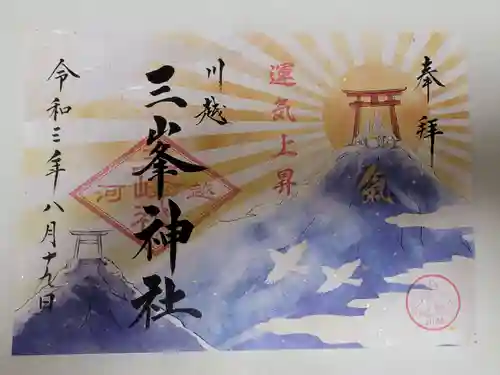 奉拝
運気上昇
氣
川越
三峯神社
令和三年八月十九日